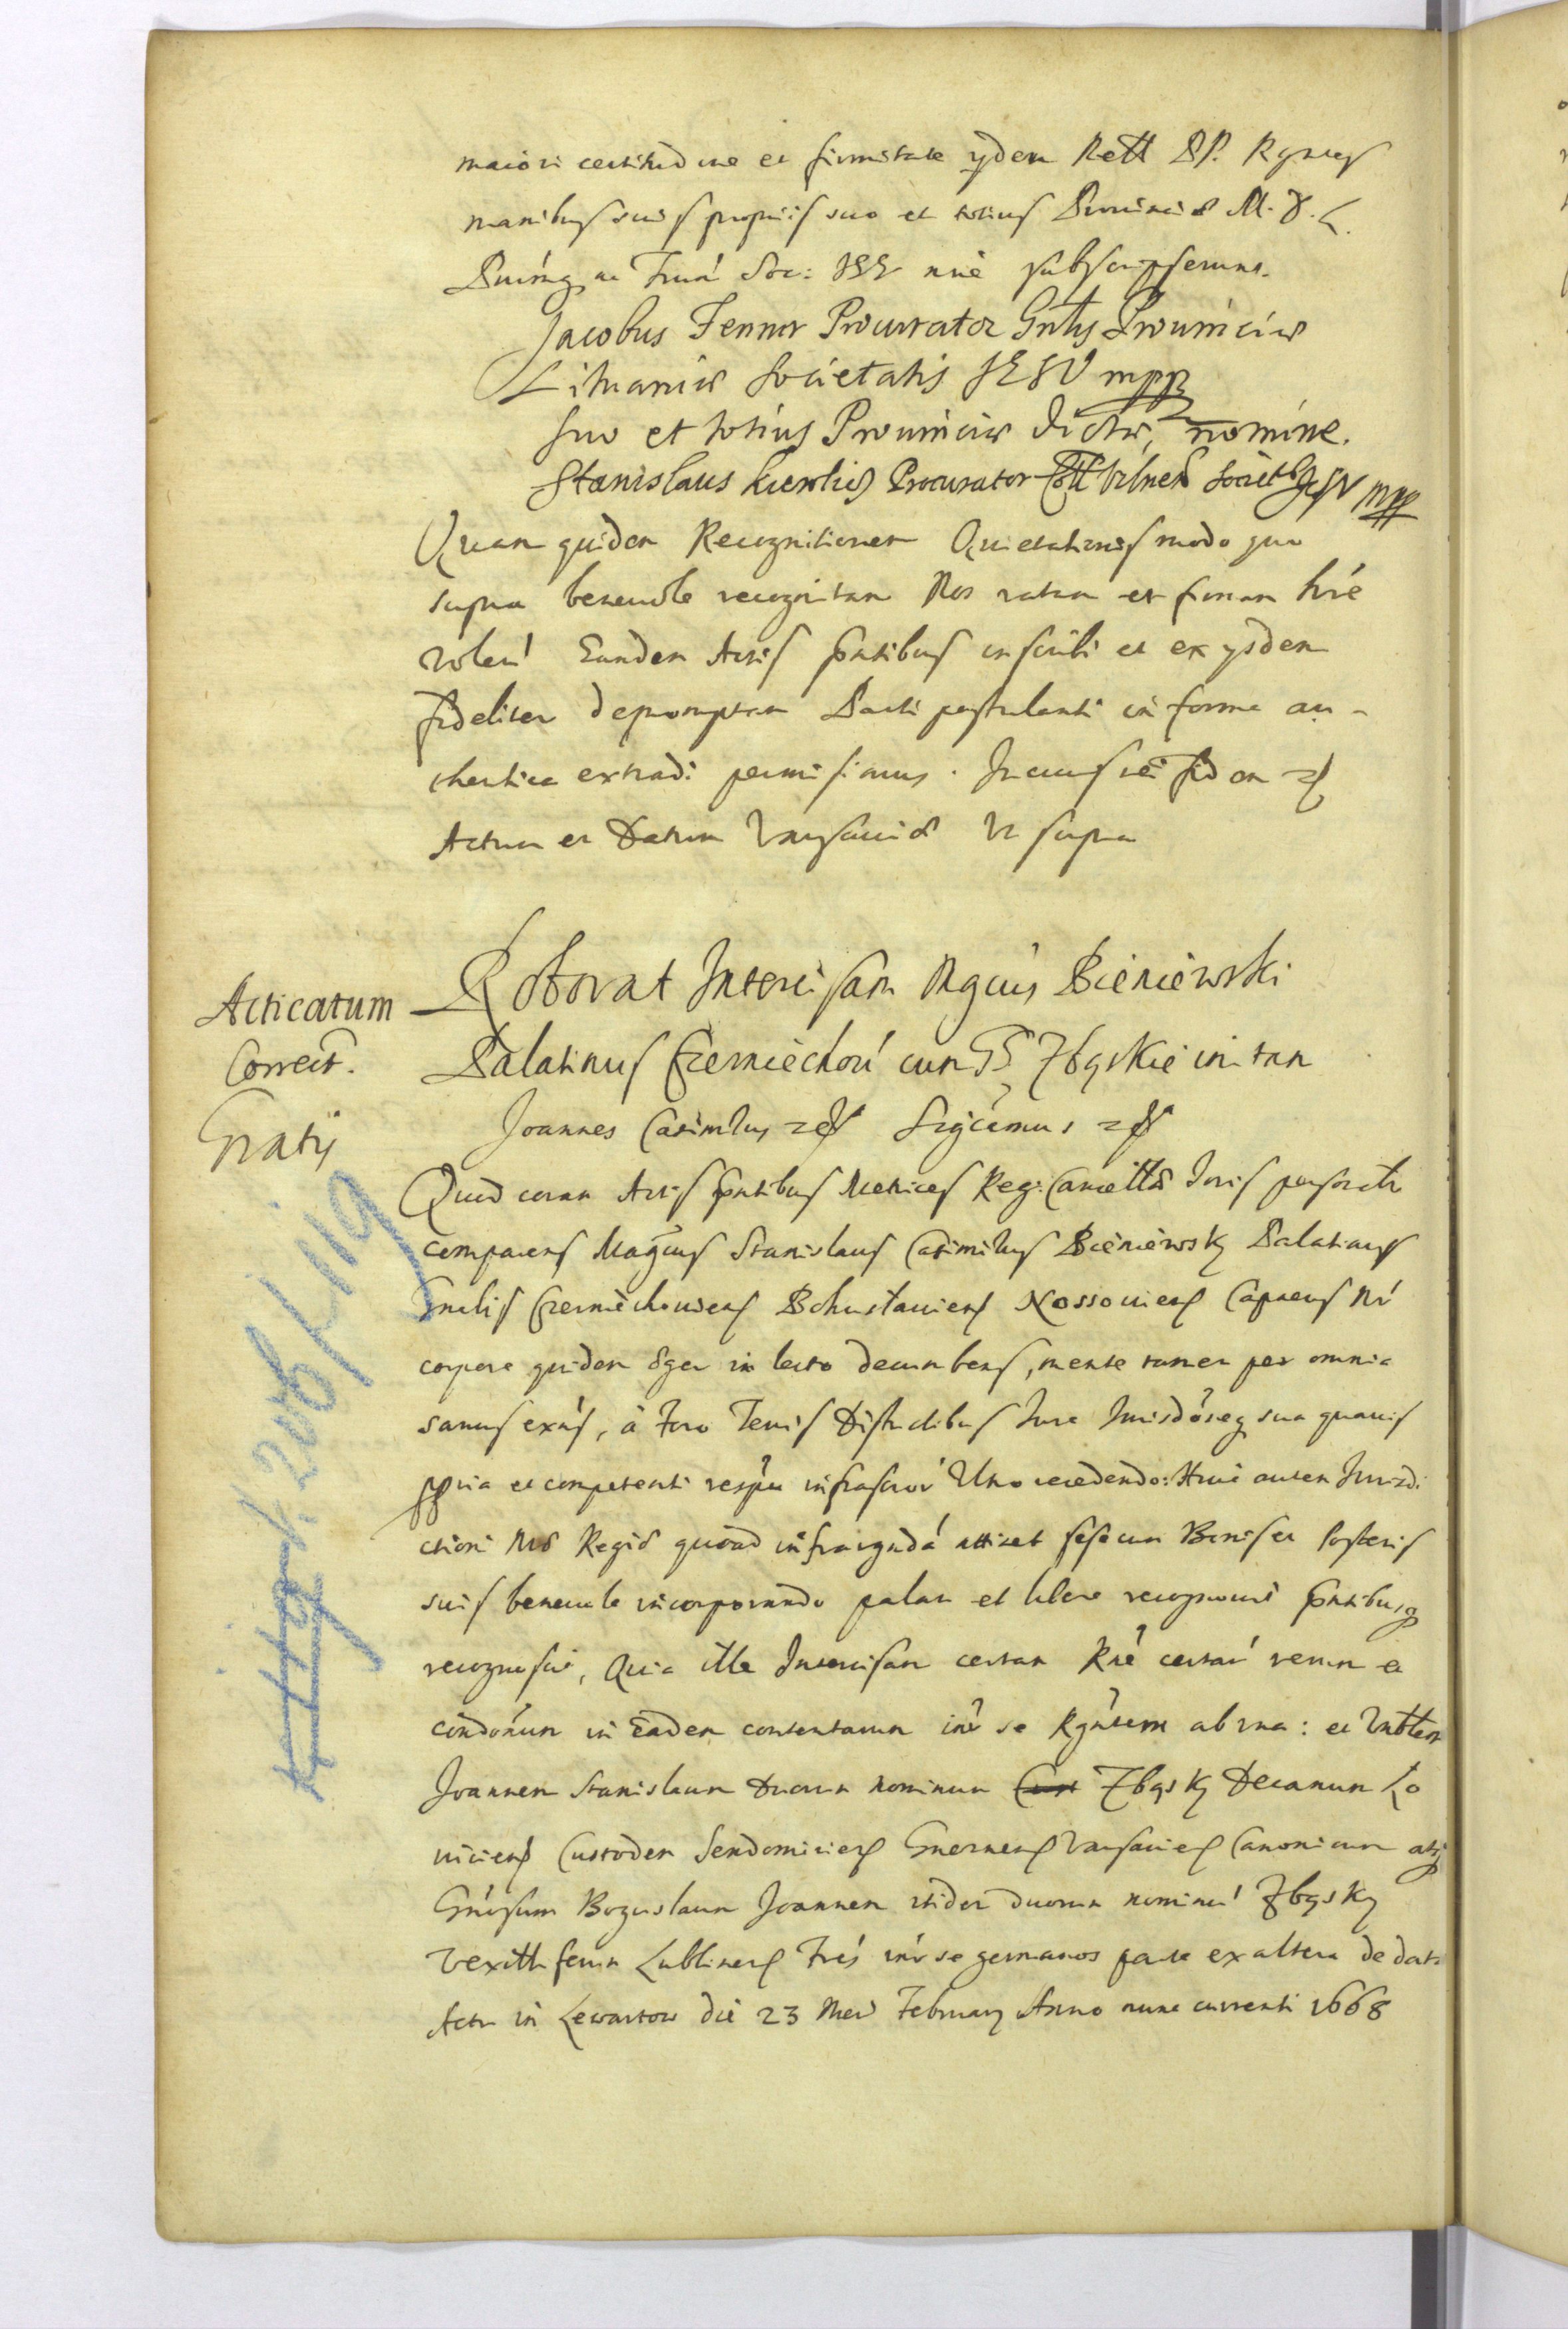 maiori certitudine et firmitate ijdem Rett PP. Rgntes
manibus suis proprijs suo et totius Prouinciæ M. D. L.
Jacobus Fenner Procurator Gnlis Prouinciæ
Lithuaniæ Societatis IESU mpp
suo et totius Prouinciæ dictæ, nomine.
Stanislaus Procurator Coll Vilnen Societ IESV mpp
Quam quidem Recognitionem Quietationis modo quo
supra beneuole recognitam Nos ratam et firmam hre
volen Eandem Actis pntibus inscribi et ex ysdem
fideliter depromptam Parti postulanti in forma au-
thentica extradi permisimus. In cuius rei fidem
Actum et Datum Varsauiæ Vt supra
Acticatum
Correct.
Gratis
Roborat Intercisam Mgcus Bieniewski
Palatinus Czerniechou cum Zbąskie initam
Joannes Casimirus Sigcamus
Quod coram Actis pntibus Metrices Reg: Cancellæ
comparens Magcus Stanislaus Casimirus Bieniewsky Palatinus
Gnalis Czerniechouiens Bohuslauiens Nossouiens Capneus Nr
corpore quidem æger in lecto decumbens, mente tamen per omnia
sanus exns, à Foro Terris Districtibus Jure Jurisdoneq sua quauis
ppria et competenti respu infrascror Vtro recedendo: Huic autem Jurisdi
ctioni Næ Regiæ quoad infraignda attinet sese cum Bonis et Posteris
suis beneuole incorporando palam et libere recognouit pntibusq
recognoscit, Quia ille Intercisam certam Rne certar rerum et
condonum in Eadem contentarum intr se Rgntem ab vna: et Vnbltem
Joannem Stanislaum Duorum nominum Zbąsky Decanum Lo
uiciens Custodem Sendomiriens Gnesnens Varsauiens Canonicum atq
Gnosum Boguslaum Joannem itidem duorum nominu Zbąsky
Vexilliferum Lublinens Fres intr se germanos parte ex altera de data
Actu in Lewartow die 23 Men February Anno nunc currenti 1668